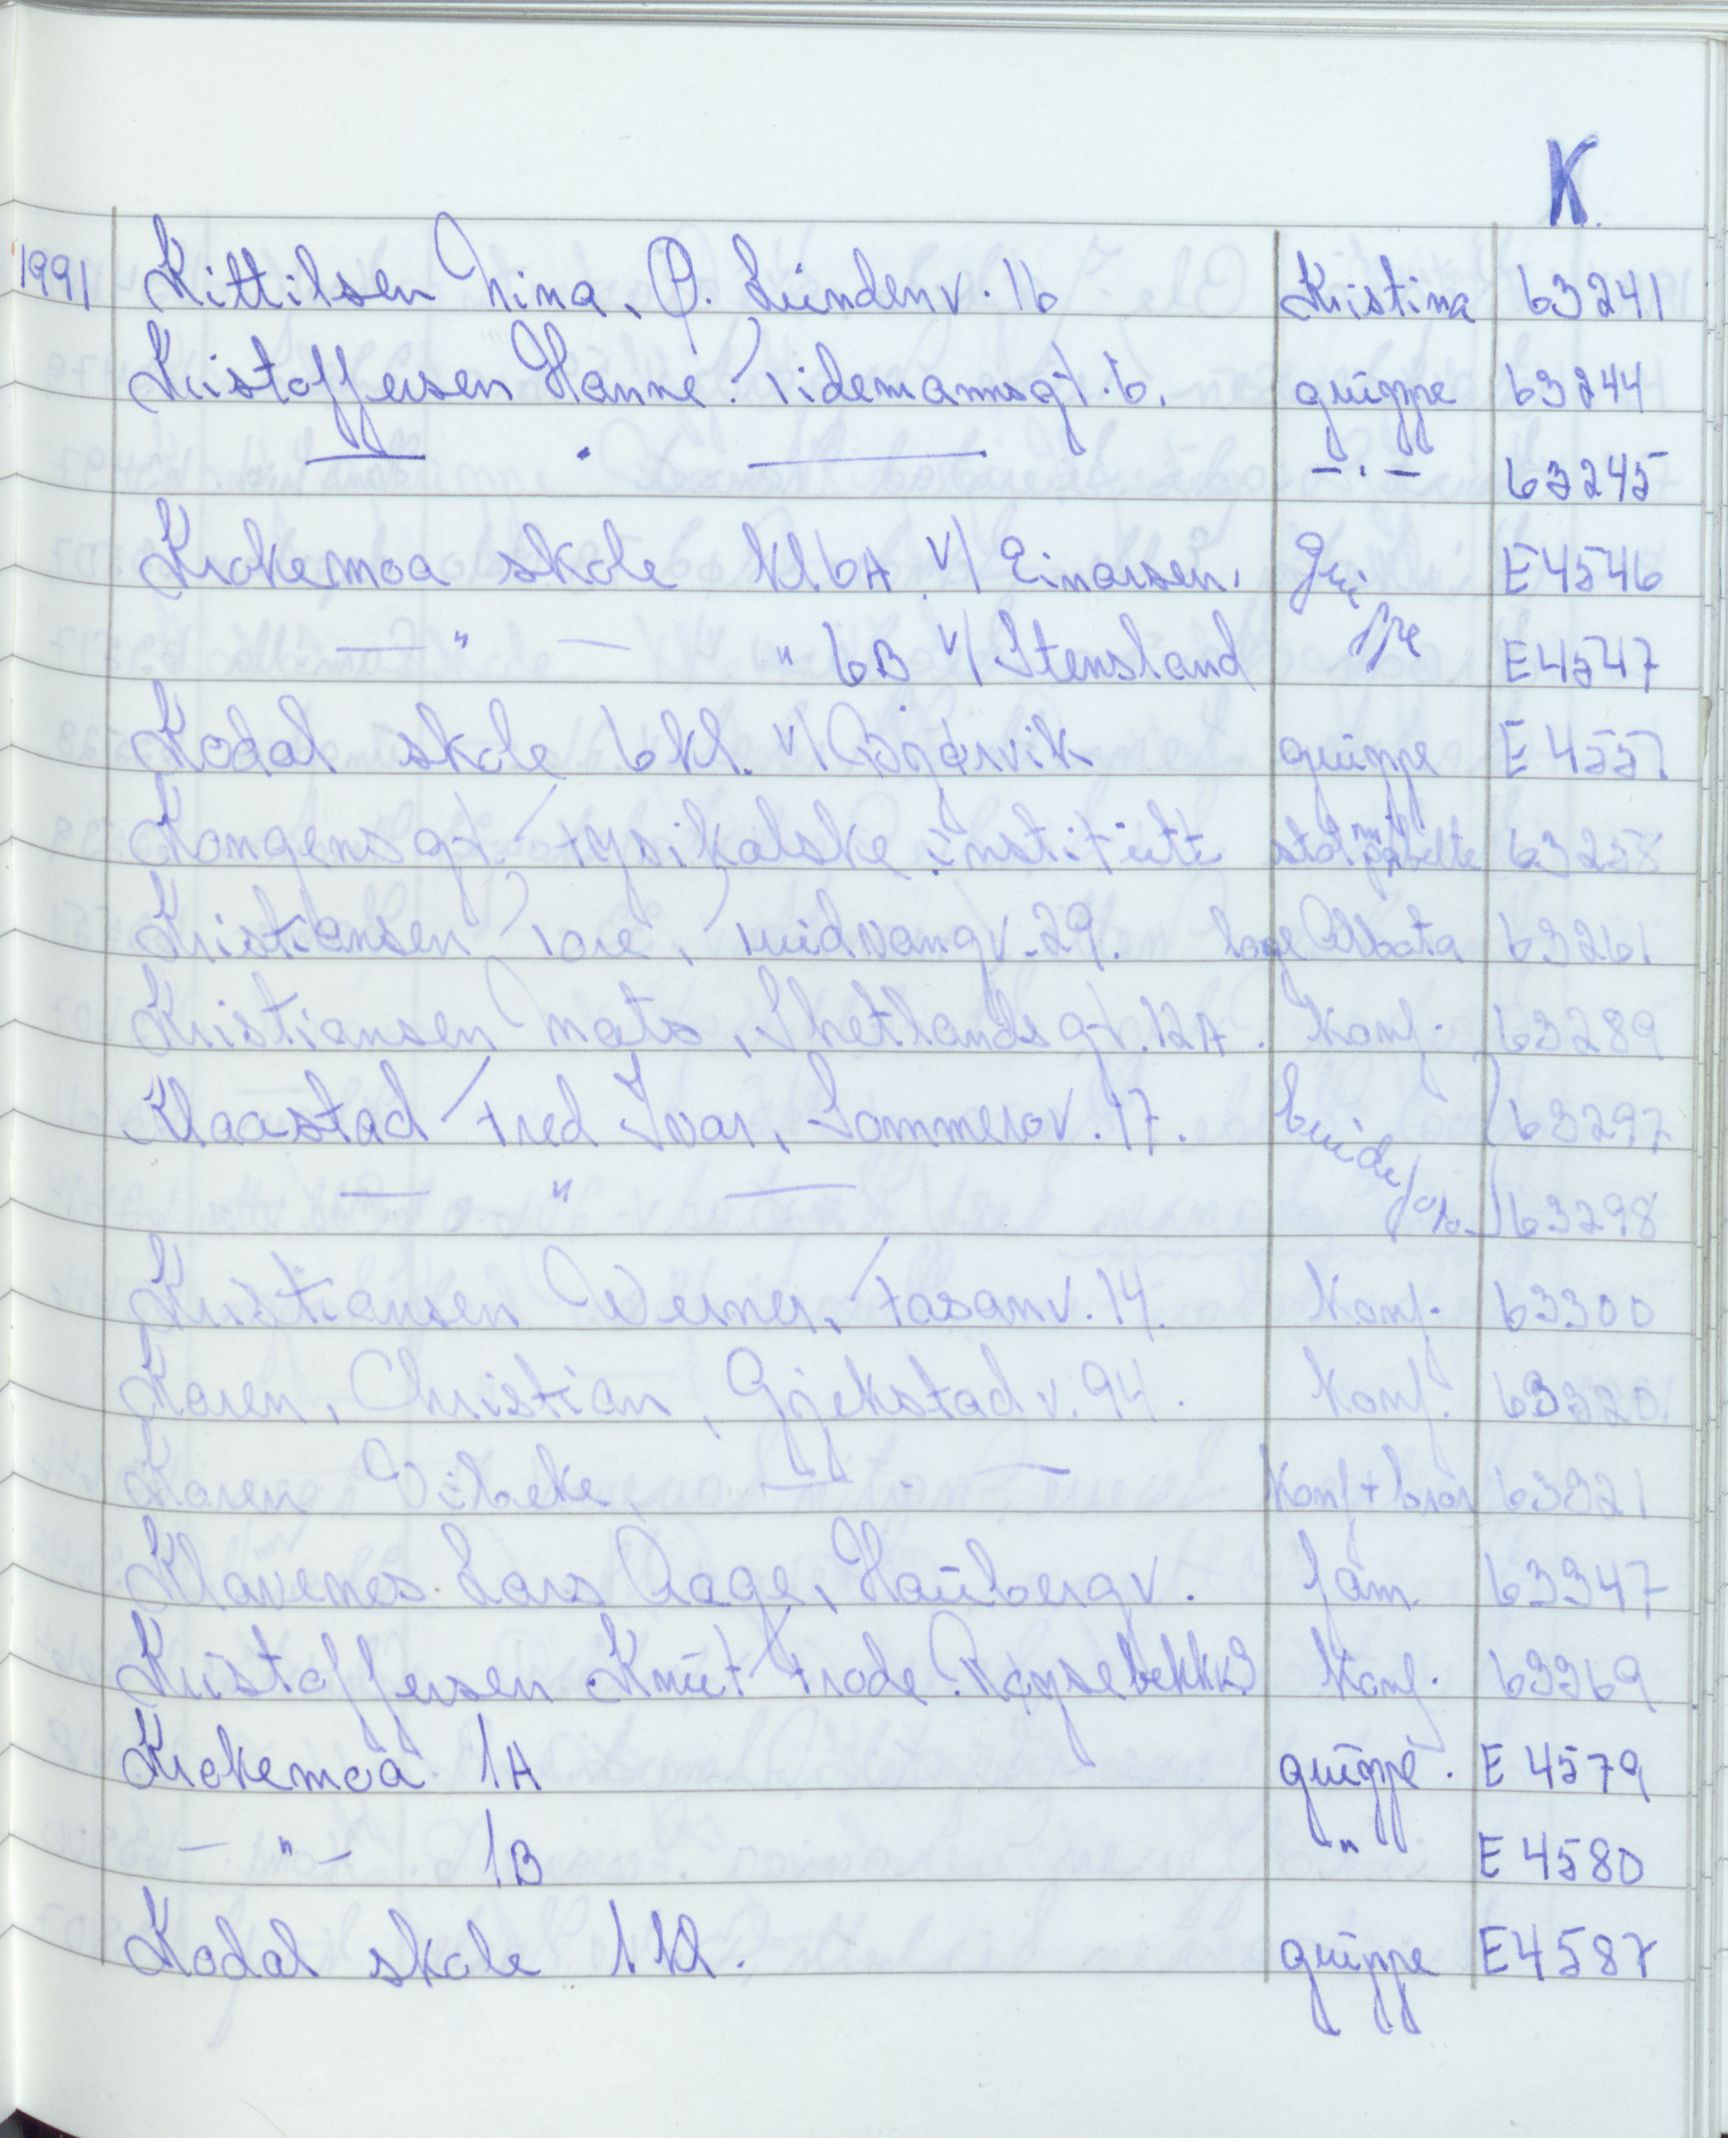 K.
1991 Kittilsen Nina, P. Lündenv. 16 Kristina 63241
Kristoffersen Hanne. Tidemannsgt. 6. grüppe 63244
— . — — . — 63245
Krokemoa skole kl 6A. v/ Einarsen. Grü E4546
— " — " 6B v/ Stensland ppe E4547
Kodal skole 6 kl. v/ Bjørvik grüppe E4557
Kongensgt. Fysikalske institütt 63258
Kristiansen Tore, 29. loge 63261
Kristiansen Mats, Shetlandsgt. 12A. Konf. 63289
Klaastad Fred Ivar, Sommerov. 17. brüde 63297
— " — 63298
Kristiansen Werner, Fasanv. 14. Konf. 63300
Karen, Christian, Gjekstadv. 94. Konf. 63320
Karen Vibeke, — " — Konf + bror 63321
Klavenes Lars Aage, Haübergv. fam. 63347
Kristoffersen Knüt Frode. Konf. 63369
Krokemoa 1A grüppe. E 4579
— " — 1B " E 4580
Kodal skole 1 kl. grüppe E4587